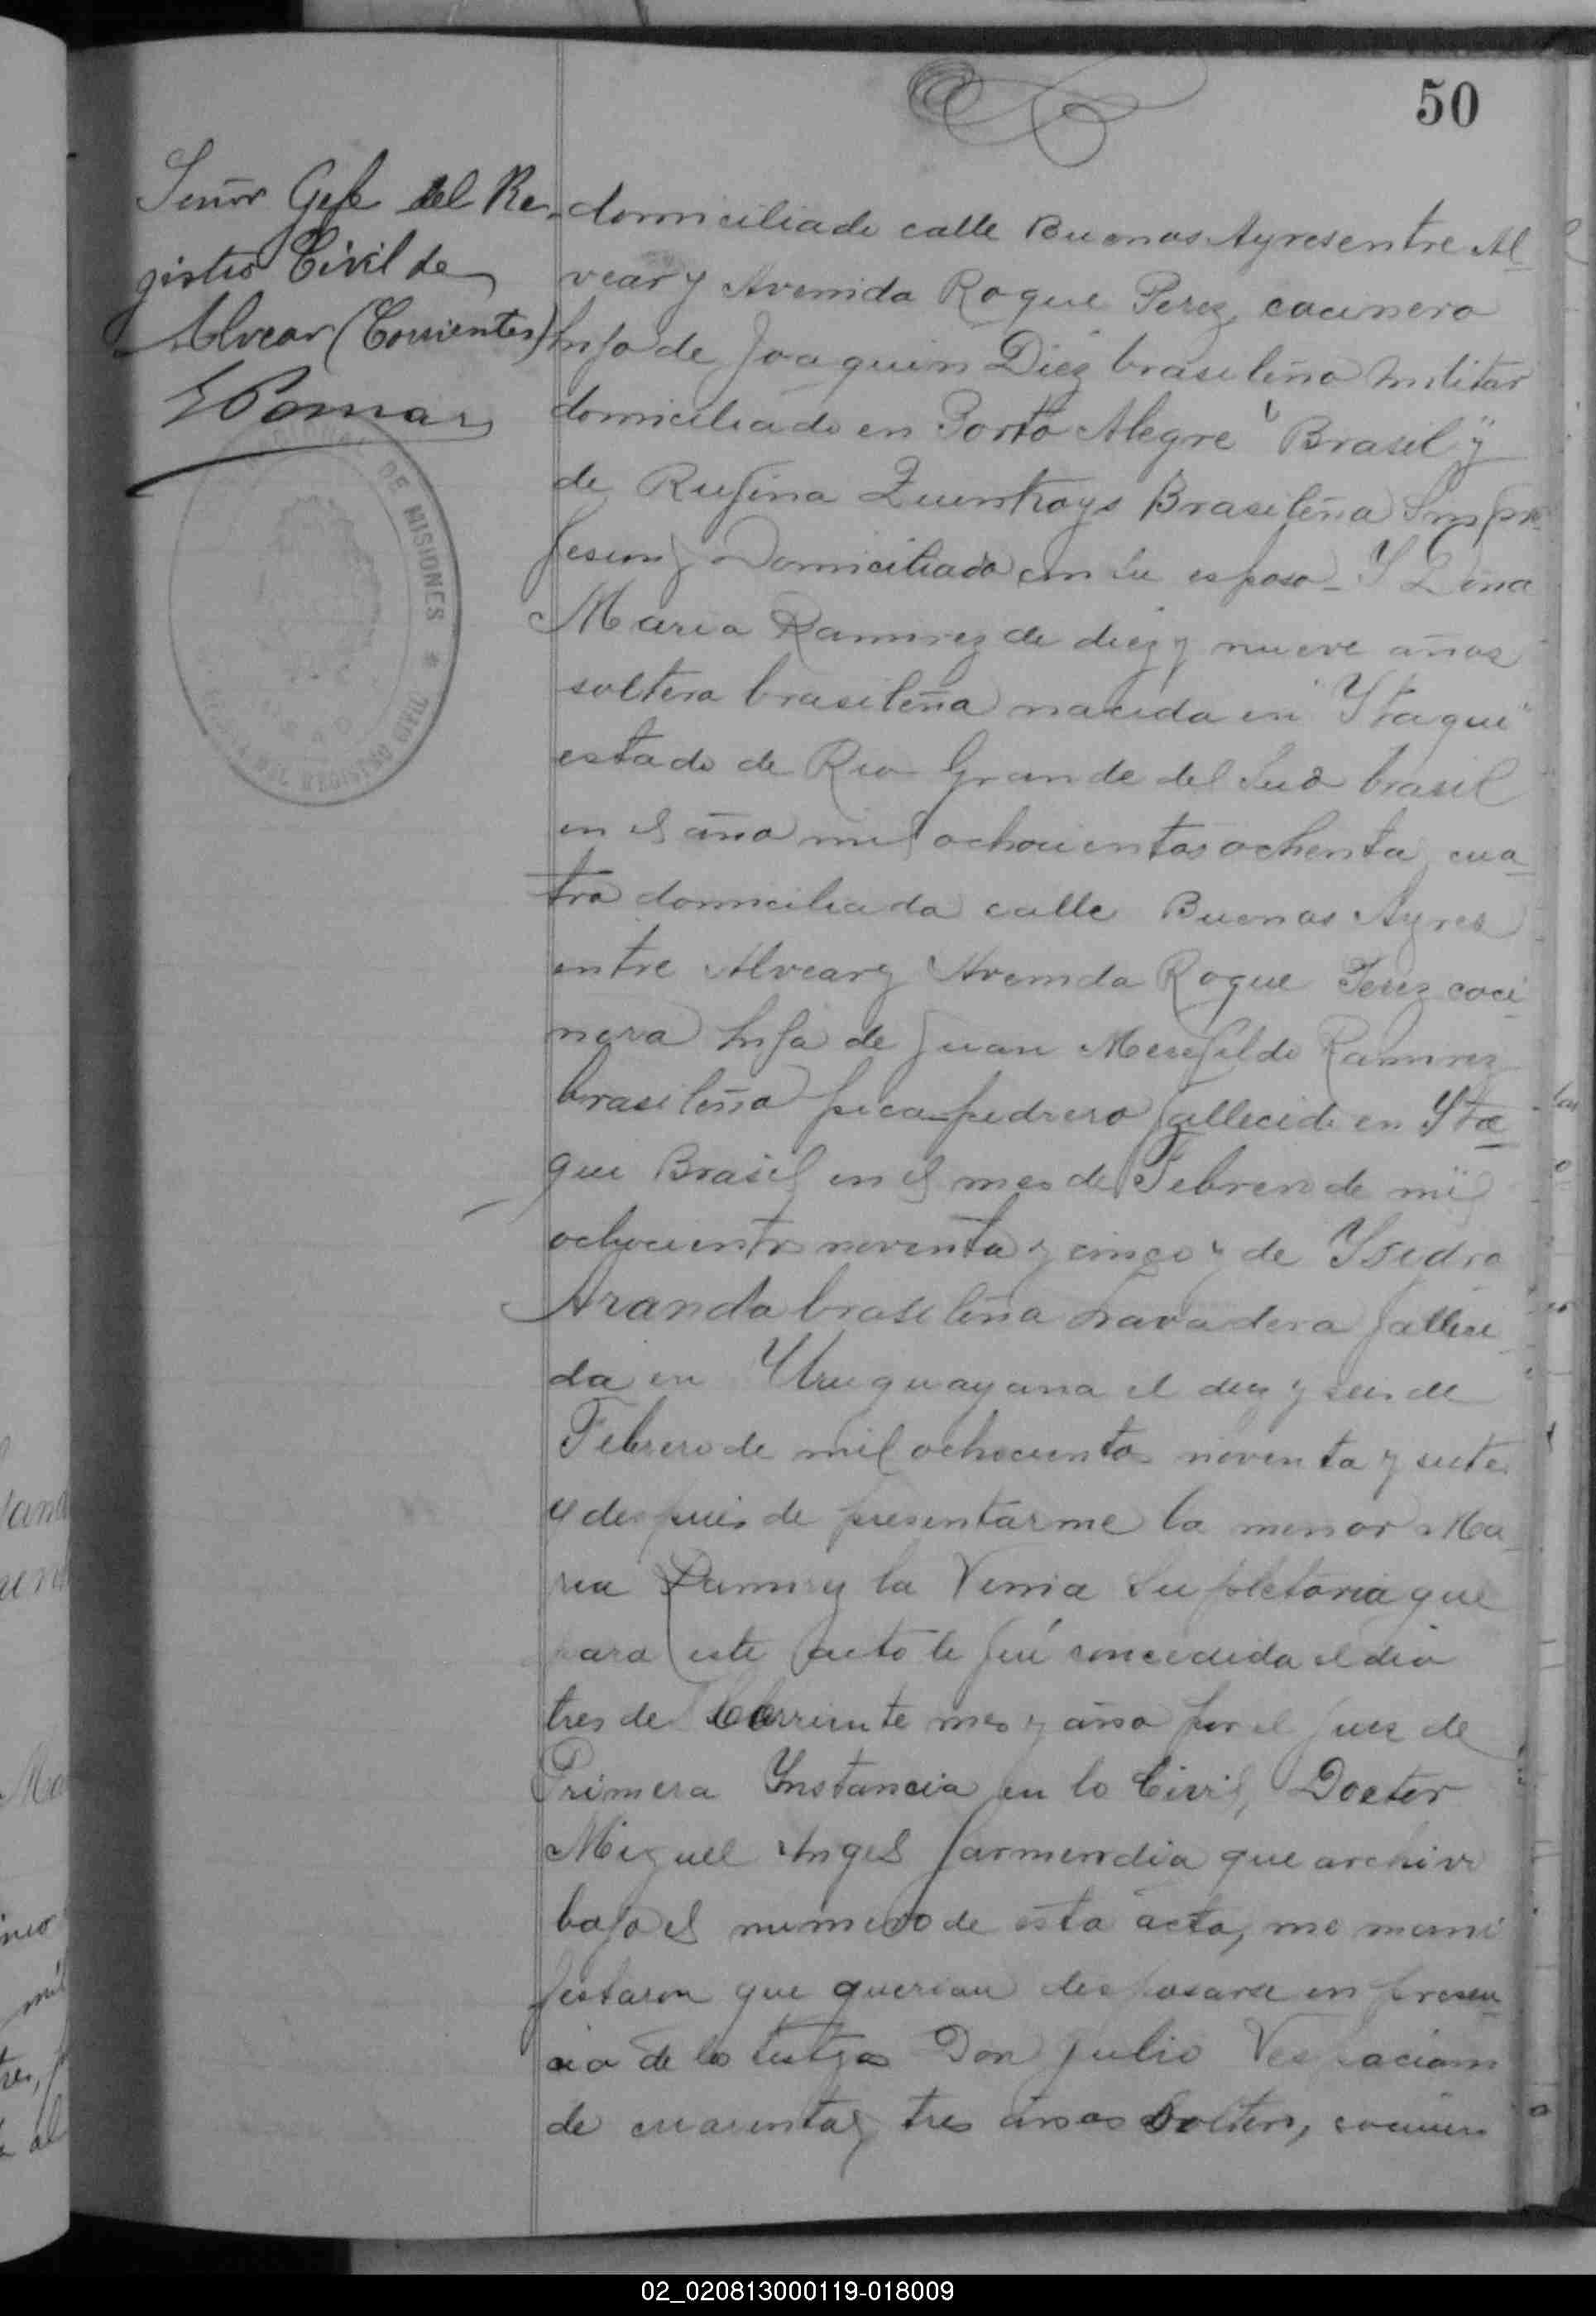 50
Señor Gefe del Re-
gistro Civil de
Alvear (Corrientes)
E Pomar
DE MISIONES * REGISTRO CIVIL
domiciliado calle Buenos Ayres entre Al-
vear y Avenida Roque Perez, cocinero
hijo de Joaquin Diez brasileño militar
domiciliado en Porto Alegre "Brasil" y
de Rufina Brasileña Sin pro-
fesion y Domiciliada con su esposo_ Y Doña
Maria Ramirez de diez y nueve años
soltera brasileña nacida en "Ytaqui"
estado de Rio Grande del Sud brasil
en el año mil ochocientos ochenta y cua-
tro domiciliada calle Buenos Ayres
entre Alvear y Avenida Roque Perez coci-
nera hija de Juan Ramirez
brasileño pica-pedrero fallecido en Yta-
qui Brasil en el mes de Febrero de mil
ochocientos noventa y cinco y de Ysidra
Aranda brasileña Lavadera falleci-
da en Uruguayana el diez y seis de
Febrero de mil ochocientos noventa y siete
y despues de presentarme la menor Ma-
ria Ramirez la Venia Supletoria que
para este acto le fué concedida el dia
tres del Corriente mes y año por el juez de
Primera Ynstancia en lo Civil, Doctor
Miguel Angel Garmendia que archivo
bajo el numero de esta acta, me mani
festaron que querian desposarse en presen-
cia de los testigos Don Julio
de cuarenta y tres años Soltero, cocinero
02_020813000119-018009